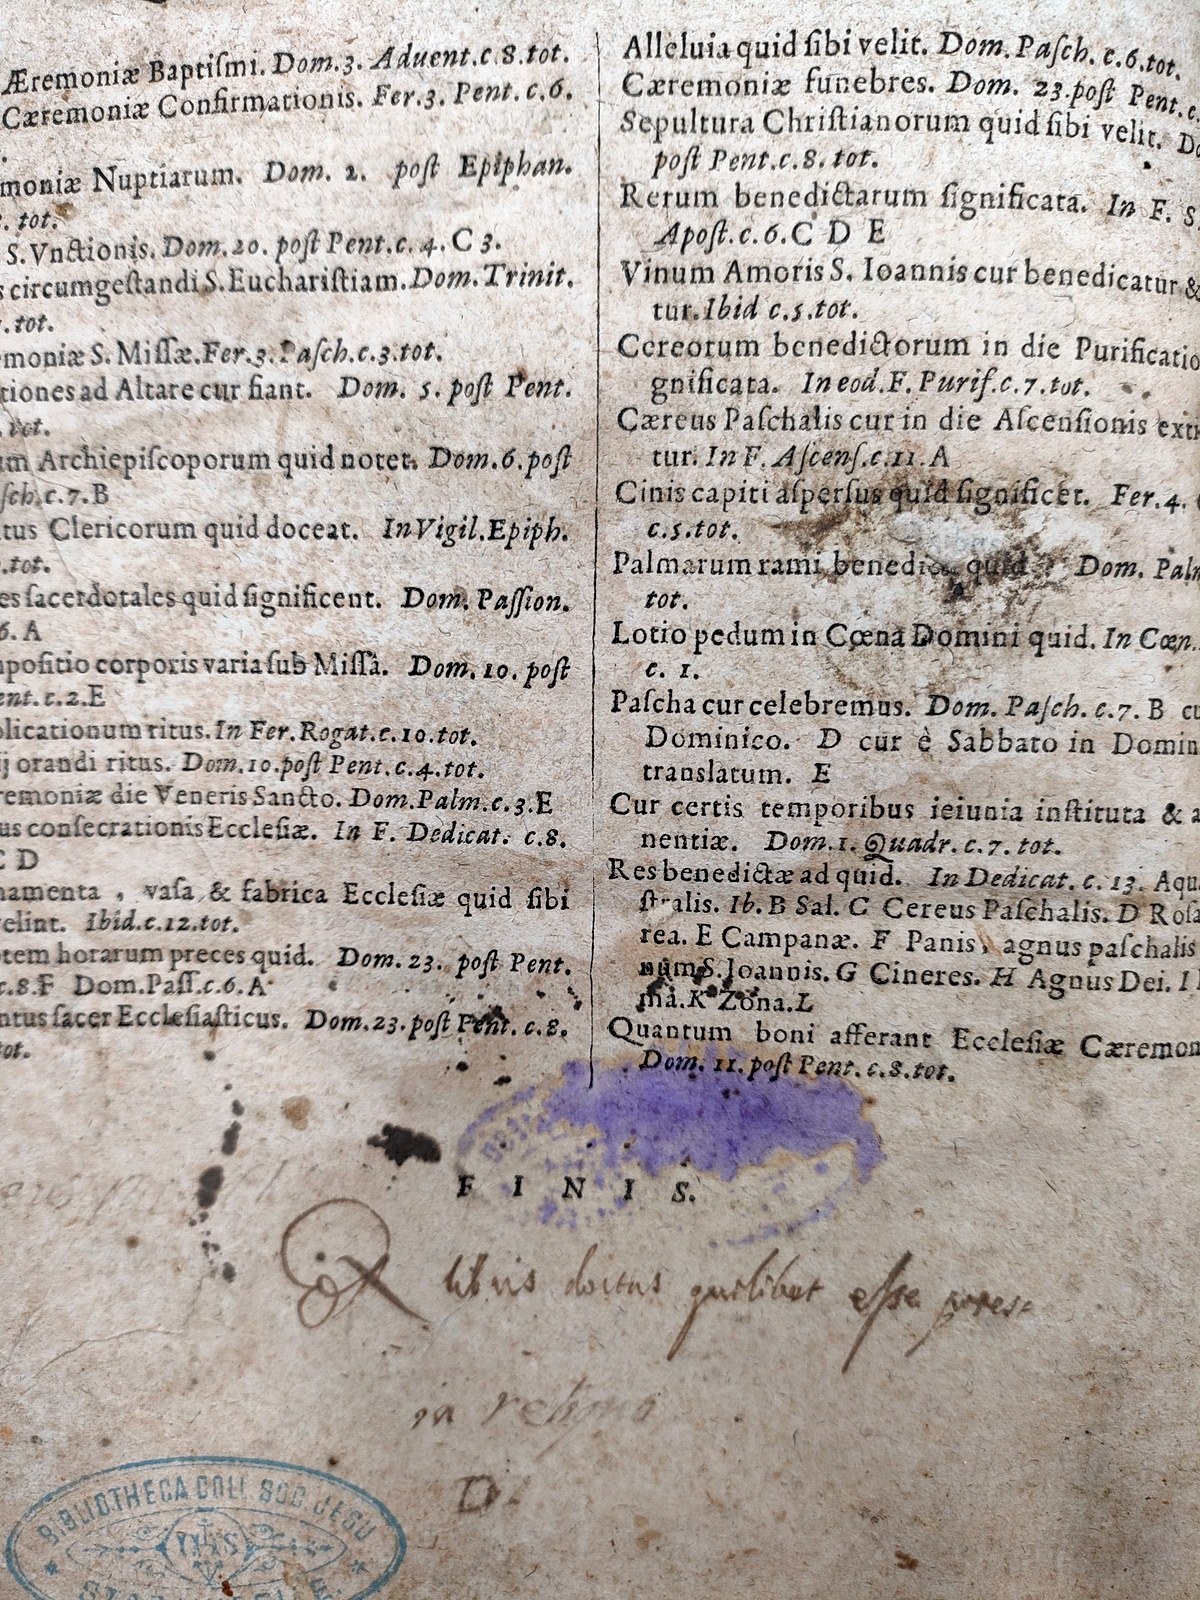 Æremoniæ Baptiſmi. Dom. 3. Aduent. c. 8. tot.
Cæremoniæ Confirmationis. Fer. 3. Pent. c. 6.
moniæ Nuptiarum. Dom. 2. poſt Epiphan.
. tot.
S. Vnctionis. Dom. 20. poſt Pent. c. 4. C 3.
s circumgeſtandi S. Euchariſtiam. Dom. Trinit.
. tot.
emoniæ S. Miſſæ. Fer. 3. Paſch. c. 3. tot.
tiones ad Altare cur fiant. Dom. 5. poſt Pent.
. tot.
um Archiepiſcoporum quid notet. Dom. 6. poſt
ſch. c. 7. B
tus Clericorum quid doceat. In Vigil. Epiph.
. tot.
es ſacerdotales quid ſignificent. Dom. Paſſion.
6. A
poſitio corporis varia ſub Miſſâ. Dom. 10. poſt
ent. c. 2. E
plicationum ritus. In Fer. Rogat. c. 10. tot.
ij orandi ritus. Dom. 10. poſt Pent. c. 4. tot.
remoniæ die Veneris Sancto. Dom. Palm. c. 3. E
us conſecrationis Eccleſiæ. In F. Dedicat. c. 8.
C D
namenta, vaſa & fabrica Eccleſiæ quid ſibi
elint. Ibid. c. 12. tot.
ptem horarum preces quid. Dom. 23. poſt Pent.
c. 8. F Dom. Paſſ. c. 6. A
ntus ſacer Eccleſiaſticus. Dom. 23. poſt Pent. c. 8.
tot.
Alleluia quid ſibi velit. Dom. Paſch. c. 6. tot.
Cæremoniæ funebres. Dom. 23. poſt Pent. c.
Sepultura Chriſtianorum quid ſibi velit. Do
poſt Pent. c. 8. tot.
Rerum benedictarum ſignificata. In F. S.
Apoſt. c. 6. C D E
Vinum Amoris S. Ioannis cur benedicatur &
tur. Ibid c. 5. tot.
Cereorum benedictorum in die Purificatio
gnificata. In eod. F. Purif. c. 7. tot.
Cæreus Paſchalis cur in die Aſcenſionis ext
tur. In F. Aſcenſ. c. 11. A
Cinis capiti aſperſus quid ſignificet. Fer. 4.
c. 5. tot.
Palmarum rami benedic quid Dom. Palm
tot.
Lotio pedum in Cœna Domini quid. In Cœn.
c. 1.
Paſcha cur celebremus. Dom. Paſch. c. 7. B cu
Dominico. D cur è Sabbato in Domin
translatum. E
Cur certis temporibus ieiunia inſtituta & a
nentiæ. Dom. 1. Quadr. c. 7. tot.
Res benedictæ ad quid. In Dedicat. c. 13. Aqu
ſtralis. Ib. B Sal. C Cereus Paſchalis. D Roſa
rea. E Campanæ. F Panis, agnus paſchalis
num S. Joannis. G Cineres. H Agnus Dei. I
ma. K Zona. L
Quantum boni afferant Eccleſiæ Cæremon
Dom. 11. poſt Pent. c. 8. tot.
FINIS.
Ex libris doctus quilibet eſse potest
in
D.
BIBLIOTHECA COLL. SOC. JESU
IHS